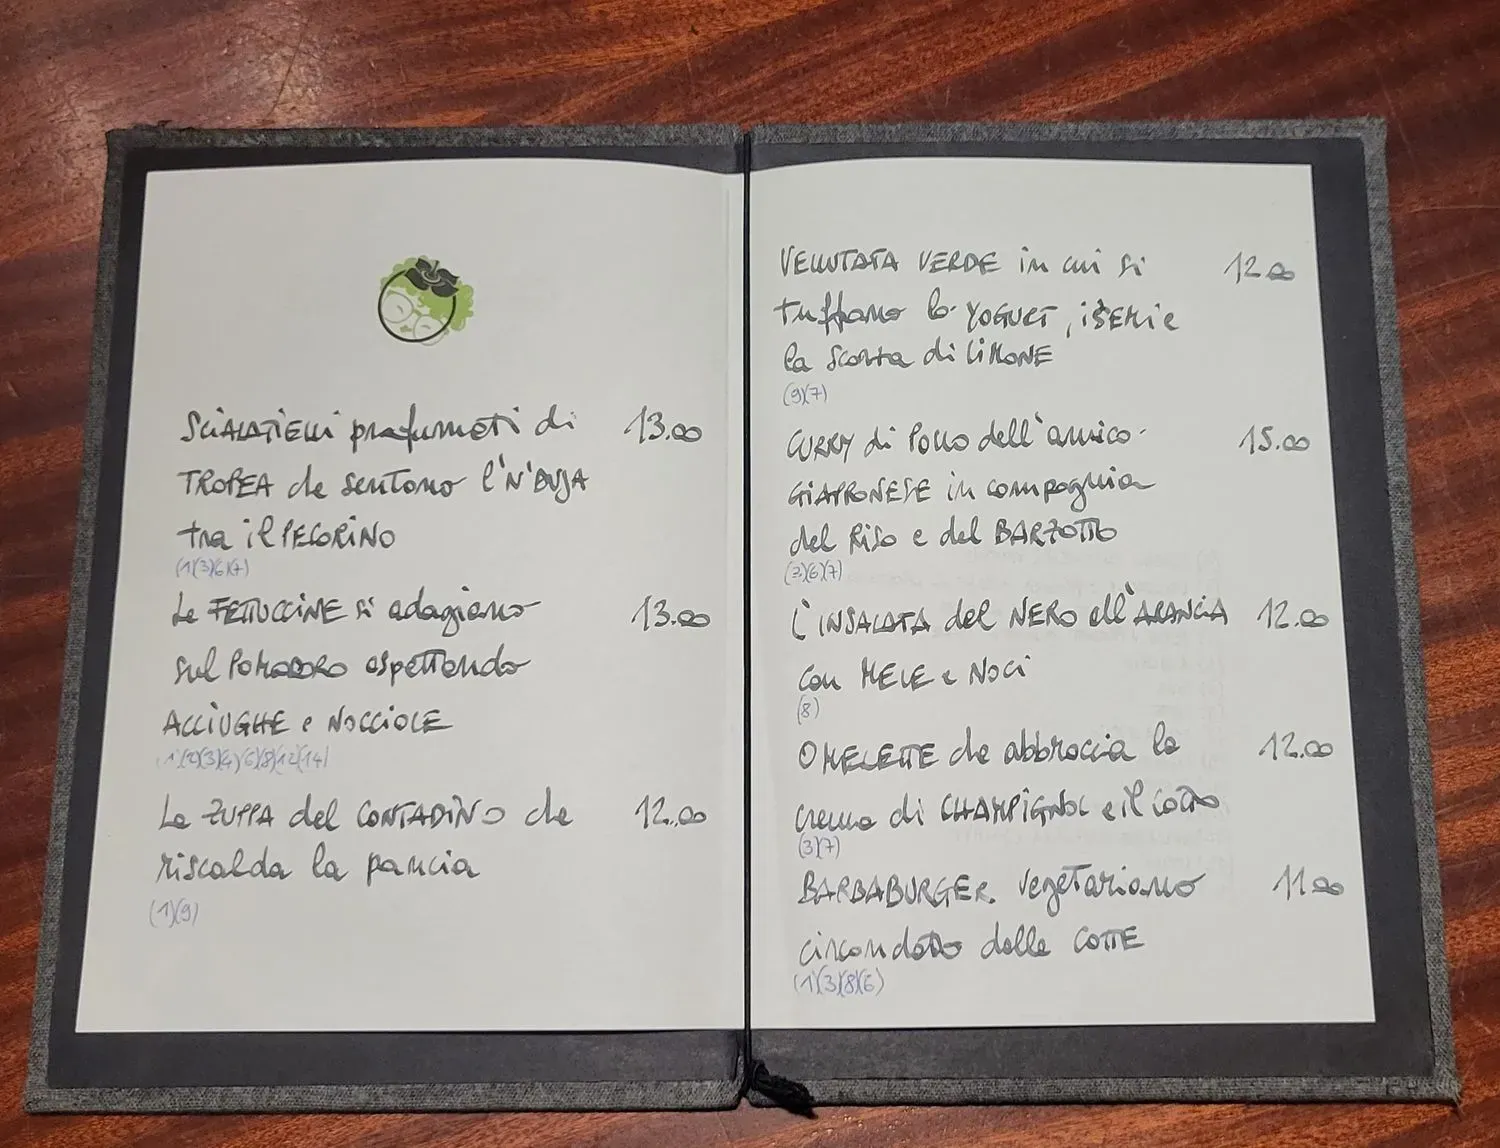 SCIALATIELLI profumati di 13.00
TROPEA che sentono l'N'DUJA
tra il PECORINO
(1)(3)(6)(7)
Le FETTUCCINE si adagiano 13.00
sul POMODORO aspettando
ACCIUGHE e NOCCIOLE
(1)(2)(3)(4)(6)(8)(12)(14)
La ZUPPA del CONTADINO che 12.00
riscalda la pancia
(1)(9)
VELLUTATA VERDE in cui si 12.00
tuffano lo YOGURT, i SEMI e
la scorza di LIMONE
(9)(7)
CURRY di POLLO dell'amico 15.00
GIAPPONESE in compagnia
del RISO e del BARZOTTO
(3)(6)(7)
L'INSALATA del NERO all'ARANCIA 12.00
con MELE e NOCI
(8)
OMELETTE che abbraccia la 12.00
crema di CHAMPIGNOL e il COTTO
(3)(7)
BARBABURGER vegetariano 11.00
circondato dalle COTTE
(1)(3)(8)(6)